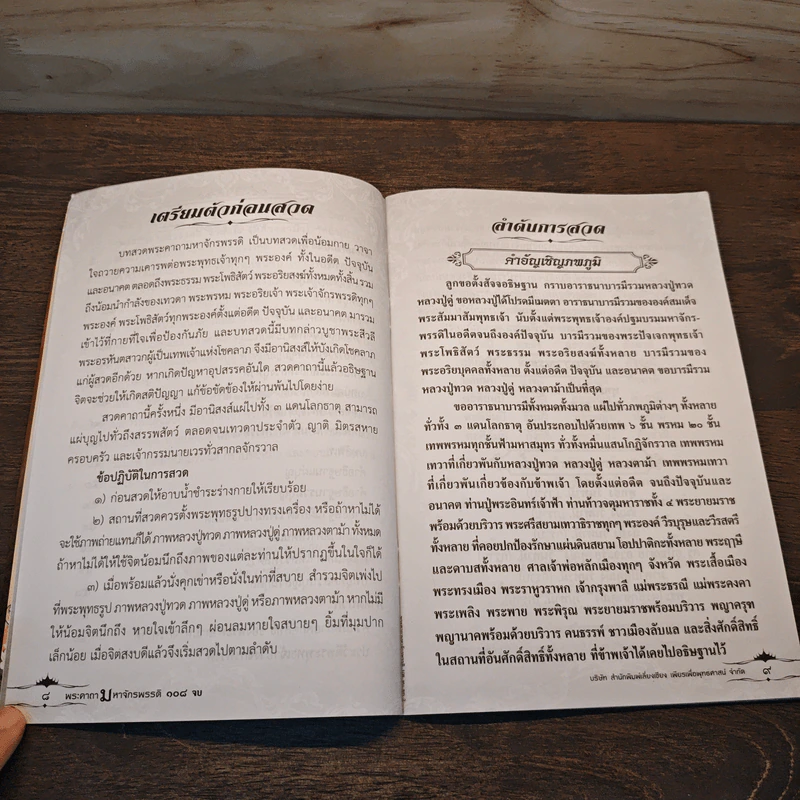 เตรียมตัวก่อนสวด
บทสวดพระคาถามหาจักรพรรดิ เป็นบทสวดเพื่อน้อมกาย วาจา
ใจถวายความเคารพต่อพระพุทธเจ้าทุกๆ พระองค์ ทั้งในอดีต ปัจจุบัน
และอนาคต ตลอดถึงพระธรรม พระโพธิสัตว์ พระอริยสงฆ์ทั้งหมดทั้งสิ้น รวม
ถึงน้อมนำกำลังของเทวดา พระพรหม พระอริยเจ้า พระเจ้าจักรพรรดิทุกๆ
พระองค์ พระโพธิสัตว์ทุกพระองค์ตั้งแต่อดีต ปัจจุบัน และอนาคต มารวม
เข้าไว้ที่กายที่ใจเพื่อป้องกันภัย และบทสวดนี้มีบทกล่าวบูชาพระสีวลี
พระอรหันตสาวกผู้เป็นเทพเจ้าแห่งโชคลาภ จึงมีอานิสงส์ให้บังเกิดโชคลาภ
แก่ผู้สวดอีกด้วย หากเกิดปัญหาอุปสรรคอันใด สวดคาถานี้แล้วอธิษฐาน
จิตจะช่วยให้เกิดสติปัญญา แก้ข้อขัดข้องให้ผ่านพ้นไปโดยง่าย
สวดคาถานี้ครั้งหนึ่ง มีอานิสงส์แผ่ไปทั้ง ๓ แดนโลกธาตุ สามารถ
แผ่บุญไปทั่วถึงสรรพสัตว์ ตลอดจนเทวดาประจำตัว ญาติ มิตรสหาย
ครอบครัว และเจ้ากรรมนายเวรทั่วสากลจักรวาล
ข้อปฏิบัติในการสวด
๑) ก่อนสวดให้อาบน้ำชำระร่างกายให้เรียบร้อย
๒) สถานที่สวดควรตั้งพระพุทธรูปปางทรงเครื่อง หรือถ้าหาไม่ได้
จะใช้ภาพถ่ายแทนก็ได้ ภาพหลวงปู่ทวด ภาพหลวงปู่ดู่ ภาพหลวงตาม้า ทั้งหมด
ถ้าหาไม่ได้ให้ใช้จิตน้อมนึกถึงภาพของแต่ละท่านให้ปรากฏขึ้นในใจก็ได้
๓) เมื่อพร้อมแล้วนั่งคุกเข่าหรือนั่งในท่าที่สบาย สำรวมจิตเพ่งไป
ที่พระพุทธรูป ภาพหลวงปู่ทวด ภาพหลวงปู่ดู่ หรือภาพหลวงตาม้า หากไม่มี
ให้น้อมจิตนึกถึง หายใจเข้าลึกๆ ผ่อนลมหายใจสบายๆ ยิ้มที่มุมปาก
เล็กน้อย เมื่อจิตสงบดีแล้วจึงเริ่มสวดไปตามลำดับ
๘ พระคาถามหาจักรพรรดิ ๑๐๘ จบ
ลำดับการสวด
คำอัญเชิญภพภูมิ
ลูกขอตั้งสัจจอธิษฐาน กราบอาราธนาบารมีรวมหลวงปู่ทวด
หลวงปู่ดู่ ขอหลวงปู่ได้โปรดมีเมตตา อาราธนาบารมีรวมขององค์สมเด็จ
พระสัมมาสัมพุทธเจ้า นับตั้งแต่พระพุทธเจ้าองค์ปฐมบรมมหาจักร-
พรรดิในอดีตจนถึงองค์ปัจจุบัน บารมีรวมของพระปัจเจกพุทธเจ้า
พระโพธิสัตว์ พระธรรม พระอริยสงฆ์ทั้งหลาย บารมีรวมของ
พระอริยบุคคลทั้งหลาย ตั้งแต่อดีต ปัจจุบัน และอนาคต ขอบารมีรวม
หลวงปู่ทวด หลวงปู่ดู่ หลวงตาม้าเป็นที่สุด
ขออาราธนาบารมีทั้งหมดทั้งมวล แผ่ไปทั่วภพภูมิต่างๆ ทั้งหลาย
ทั่วทั้ง ๓ แดนโลกธาตุ อันประกอบไปด้วยเทพ ๖ ชั้น พรหม ๒๐ ชั้น
เทพพรหมทุกชั้นฟ้ามหาสมุทร ทั่วทั้งหมื่นแสนโกฏิจักรวาล เทพพรหม
เทวาที่เกี่ยวพันกับหลวงปู่ทวด หลวงปู่ดู่ หลวงตาม้า เทพพรหมเทวา
ที่เกี่ยวพันเกี่ยวข้องกับข้าพเจ้า โดยตั้งแต่อดีต จนถึงปัจจุบันและ
อนาคต ท่านปู่พระอินทร์เจ้าฟ้า ท่านท้าวจตุมหาราชทั้ง ๔ พระยายมราช
พร้อมด้วยบริวาร พระศรีสยามเทวาธิราชทุกๆ พระองค์ วีรบุรุษและวีรสตรี
ทั้งหลาย ที่คอยปกป้องรักษาแผ่นดินสยาม โอปปาติกะทั้งหลาย พระฤๅษี
และดาบสทั้งหลาย ศาลเจ้าพ่อหลักเมืองทุกๆ จังหวัด พระเสื้อเมือง
พระทรงเมือง พระราหูวราหก เจ้ากรุงพาลี แม่พระธรณี แม่พระคงคา
พระเพลิง พระพาย พระพิรุณ พระยายมราชพร้อมบริวาร พญาครุฑ
พญานาคพร้อมด้วยบริวาร คนธรรพ์ ชาวเมืองลับแล และสิ่งศักดิ์สิทธิ์
ในสถานที่อันศักดิ์สิทธิ์ทั้งหลาย ที่ข้าพเจ้าได้เคยไปอธิษฐานไว้
บริษัท สำนักพิมพ์เลี่ยงเชียง เพียรเพื่อพุทธศาสน์ จำกัด ๙